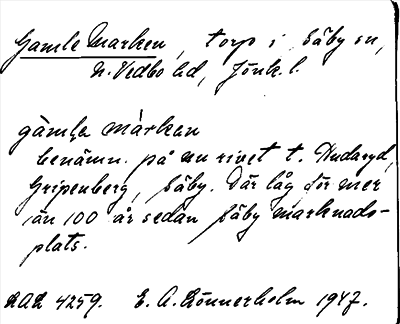 Gamle Marken, torp i Säby sn,
N. Vedbo hd, Jönk. l.
gàmḷa màrkan
benämn. på nu rivet t. Hudaryd,
Gripenberg, Säby. Där låg för mer
än 100 år sedan Säby marknads-
plats.
RAÄ 4259. E. A. Rönnerholm 1947.